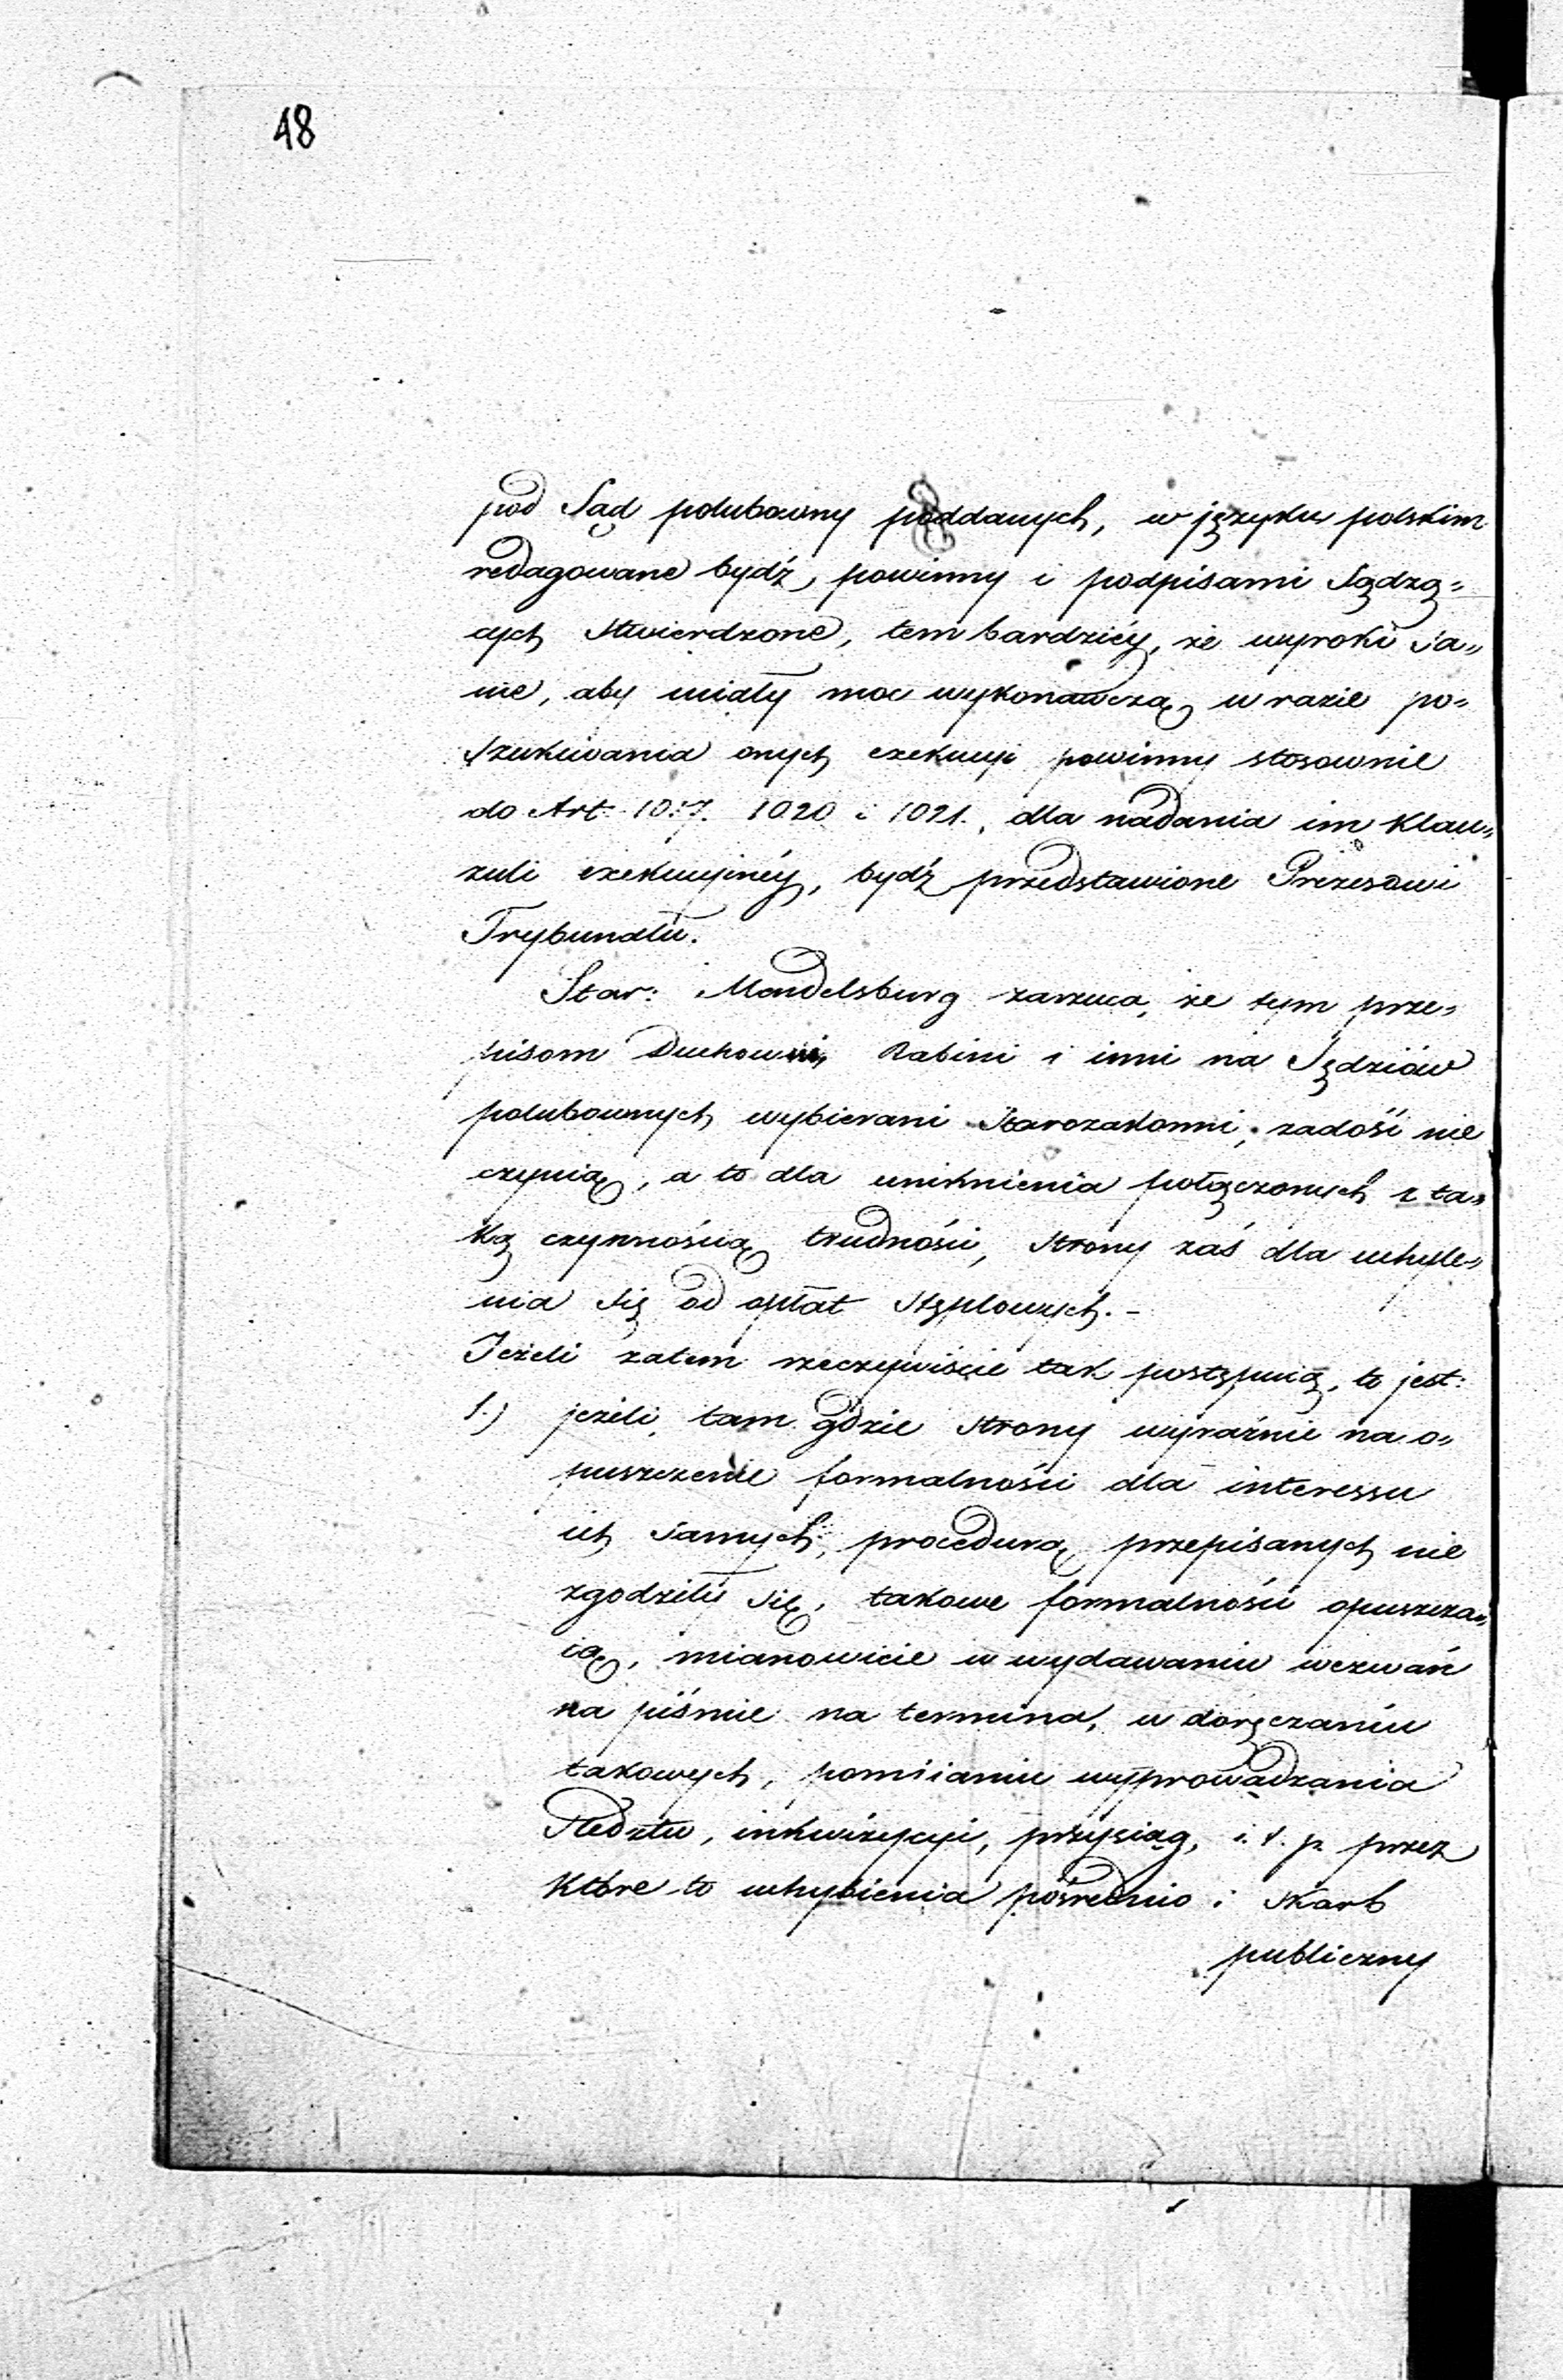 48
pod Sąd polubowny poddanych, w języku polskim
redagowane bydź, powinny i podpisami Sądzą=
cych stwierdzone, tem bardziéy, że wyroki sa=
me, aby miały moc wykonawczą w razie po=
szukiwania onych exekucyi powinny stosownie
do Art. 1017. 1020 i 1021., dla nadania im Klau=
zuli exekucyinéy, bydź przedstawione Prezesowi
Trybunału.
Star: Mendelsburg zarzuca, że tym prze=
pisom Duchowni, Rabini i inni na Sędziów
polubownych wybierani Starozakonni, zadość nie
czynią, a to dla uniknienia połączonych z ta=
ką czynnością trudności, Strony zaś dla uchyle=
nia się od opłat stęplowych. -
Jeżeli zatem rzeczywiście tak postępuią, to jest:
1.) jeżeli, tam gdzie Strony wyraźnie na o=
puszczenie formalności dla interessu
ich samych, procedurą przepisanych nie
zgodziły się, takowe formalności opuszcza=
ią, mianowicie w wydawaniu wezwań
na piśmie na termina, w doręczaniu
takowych, pomiianiu wyprowadzania
Śledztw, inkwizycyi, przysiąg, i. t. p. przez
Które to uchybienia pośrednio i Skarb
publiczny